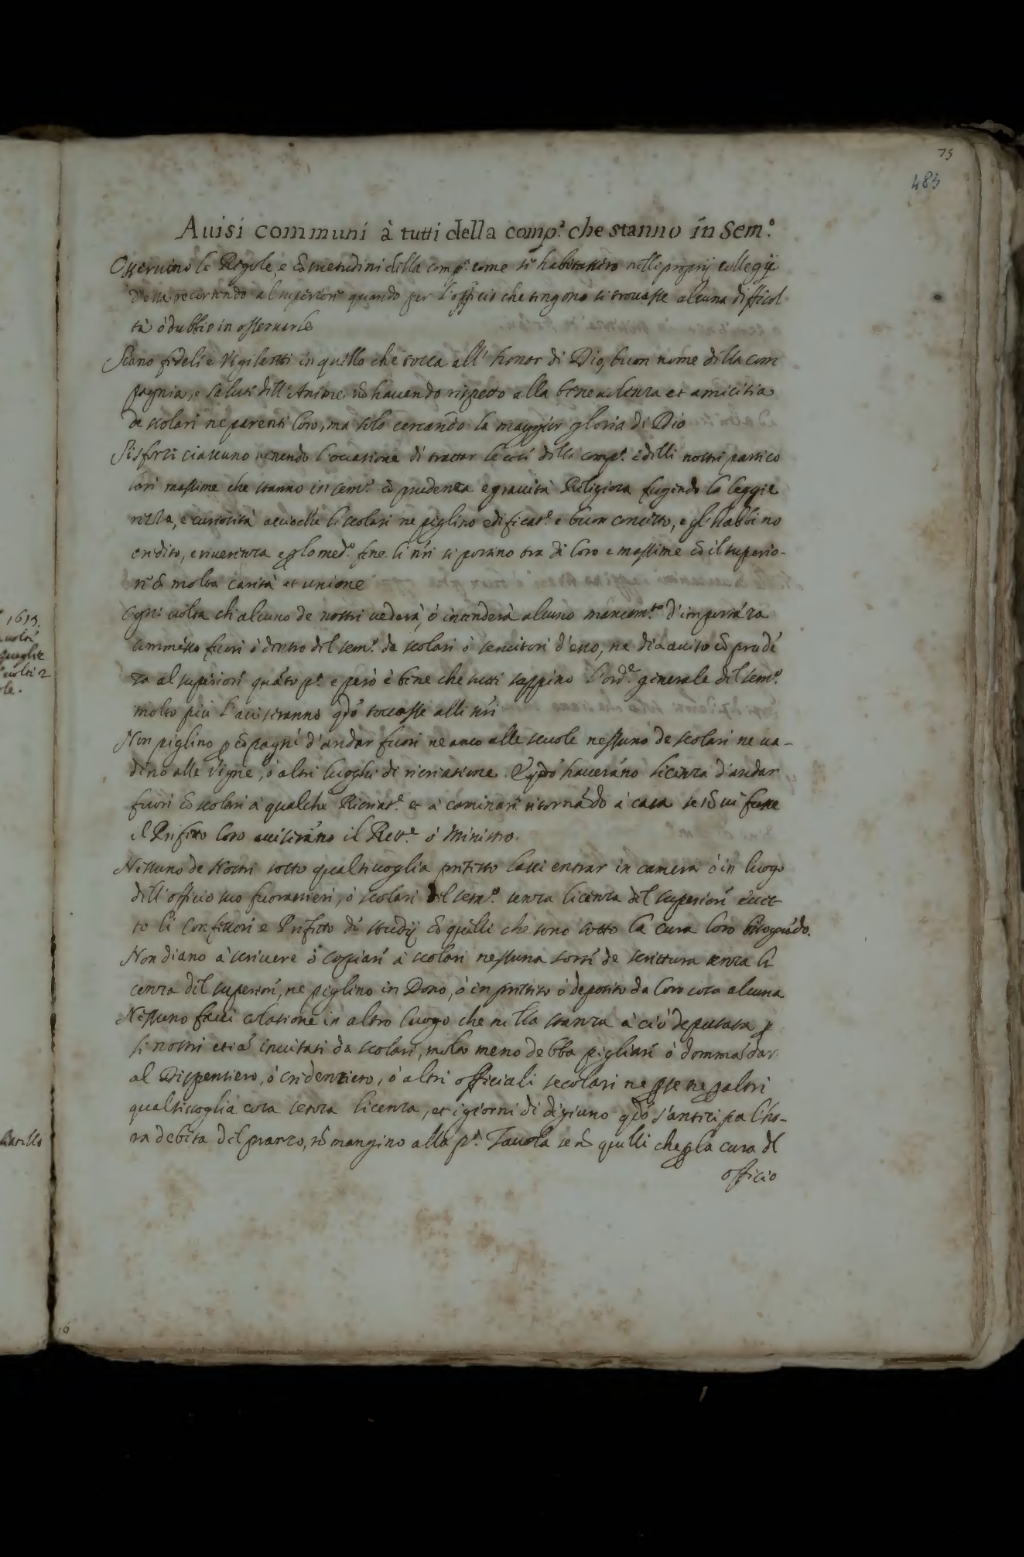 75
483
Auisi communi à tutti della comp.ª che stanno in Sem.º
Osseruino le Regole, e cõsuetudini della comp.ª come se habitassero nelli proprij collegij
recorrendo al superiore quando per l'officio che tengono si trouasse alcuna difficol
tà ò dubbio in osseruarle
Siano fideli e vigilanti in quello che tocca all' honor di Dio, buon nome della com
pagnia, e salute dell'Anime nõ hauendo rispetto alla beneuolenza et amicitia
de scolari ne parenti loro, ma solo cercando la maggior gloria di Dio
Si sforzi ciascuno uenendo l'occasione di trattar le cose della comp.ª e delli nostri partico
lari massime che stanno in sem.º cõ prudenza e grauità Religiosa fugendo la leggie
rezza, e curiosità accioche li scolari ne piglino edificat.e e buon concetto, e gl'habbino
credito, e riuerenza e per lo med.º fine li nri si portino tra di loro e massime cõ il superio-
re cõ molta carità et unione
Ogni uolta ch'alcuno de nostri uederà, ò intenderà alcuno mancam.to d'importãza
commesso fuori ò dentro del sem.º da scolari ò seruitori d'esso, ne dia auiso cõ prudẽ
za al superiore quãto p.ª e però è bene che tutti sappino l'ord.e generale del sem.º
molto più l'auiseranno qdõ toccasse alli nri
Non piglino p cõpagni d'andar fuori ne anco alle scuole nessuno de scolari ne ua-
dino alle vigne, ò altri luoghi di ricreatione. E qdõ hauerãno licenza d'andar
fuori cõ scolari a qualche Ricreat.e et a caminare ritornãdo a casa se nõ ui fusse
il Prefetto loro auiserãno il Rett.e ò Ministro.
Nessuno de Nostri sotto qualsiuoglia pretesto lassi entrar in camera ò in luogo
dell'officio suo fuorastieri, ò scolari del sem.º senza licenza del superiore eccet-
to li Confessori e Prefetto di studij cõ quelli che sono sotto la cura loro bisognãdo.
Non diano à scriuere ò copiare a scolari nessuna sorte de scrittura senza li
cenza del superiore, ne piglino in Dono, ò in prestito ò deposito da loro cosa alcuna
Nessuno facci colatione in altro luogo che nella stanza a ciò deputata p
li nostri etiã inuitati da scolari, molto meno debba pigliare ò dommãdar
al Dispensiero, ò credenziero, ò altri officiali secolari ne p se ne p altri
qualsiuoglia cosa senza licenza, et i giorni di digiuno qdõ s'anticipa l'ho-
ra debita del pranzo, nõ mangino alla p.ª Tauola se nõ quelli che p la cura del
officio
1613.
quegle
ole.